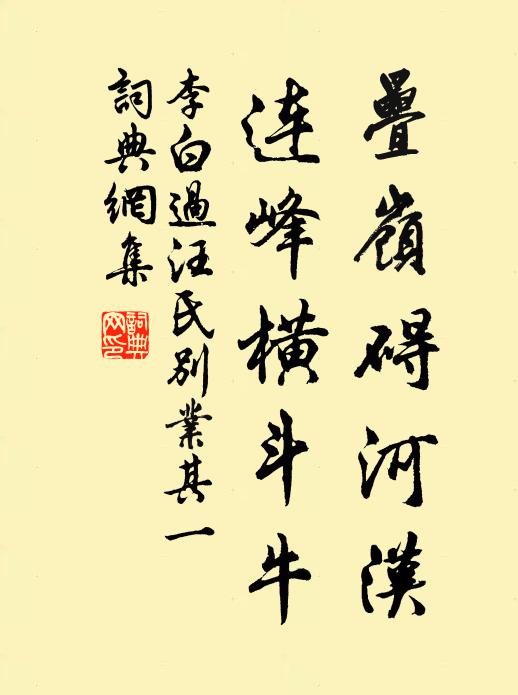 疊嶺碍河漢
連峰橫斗牛
李白過汪氏別業其一
詞典網集
詞典網印